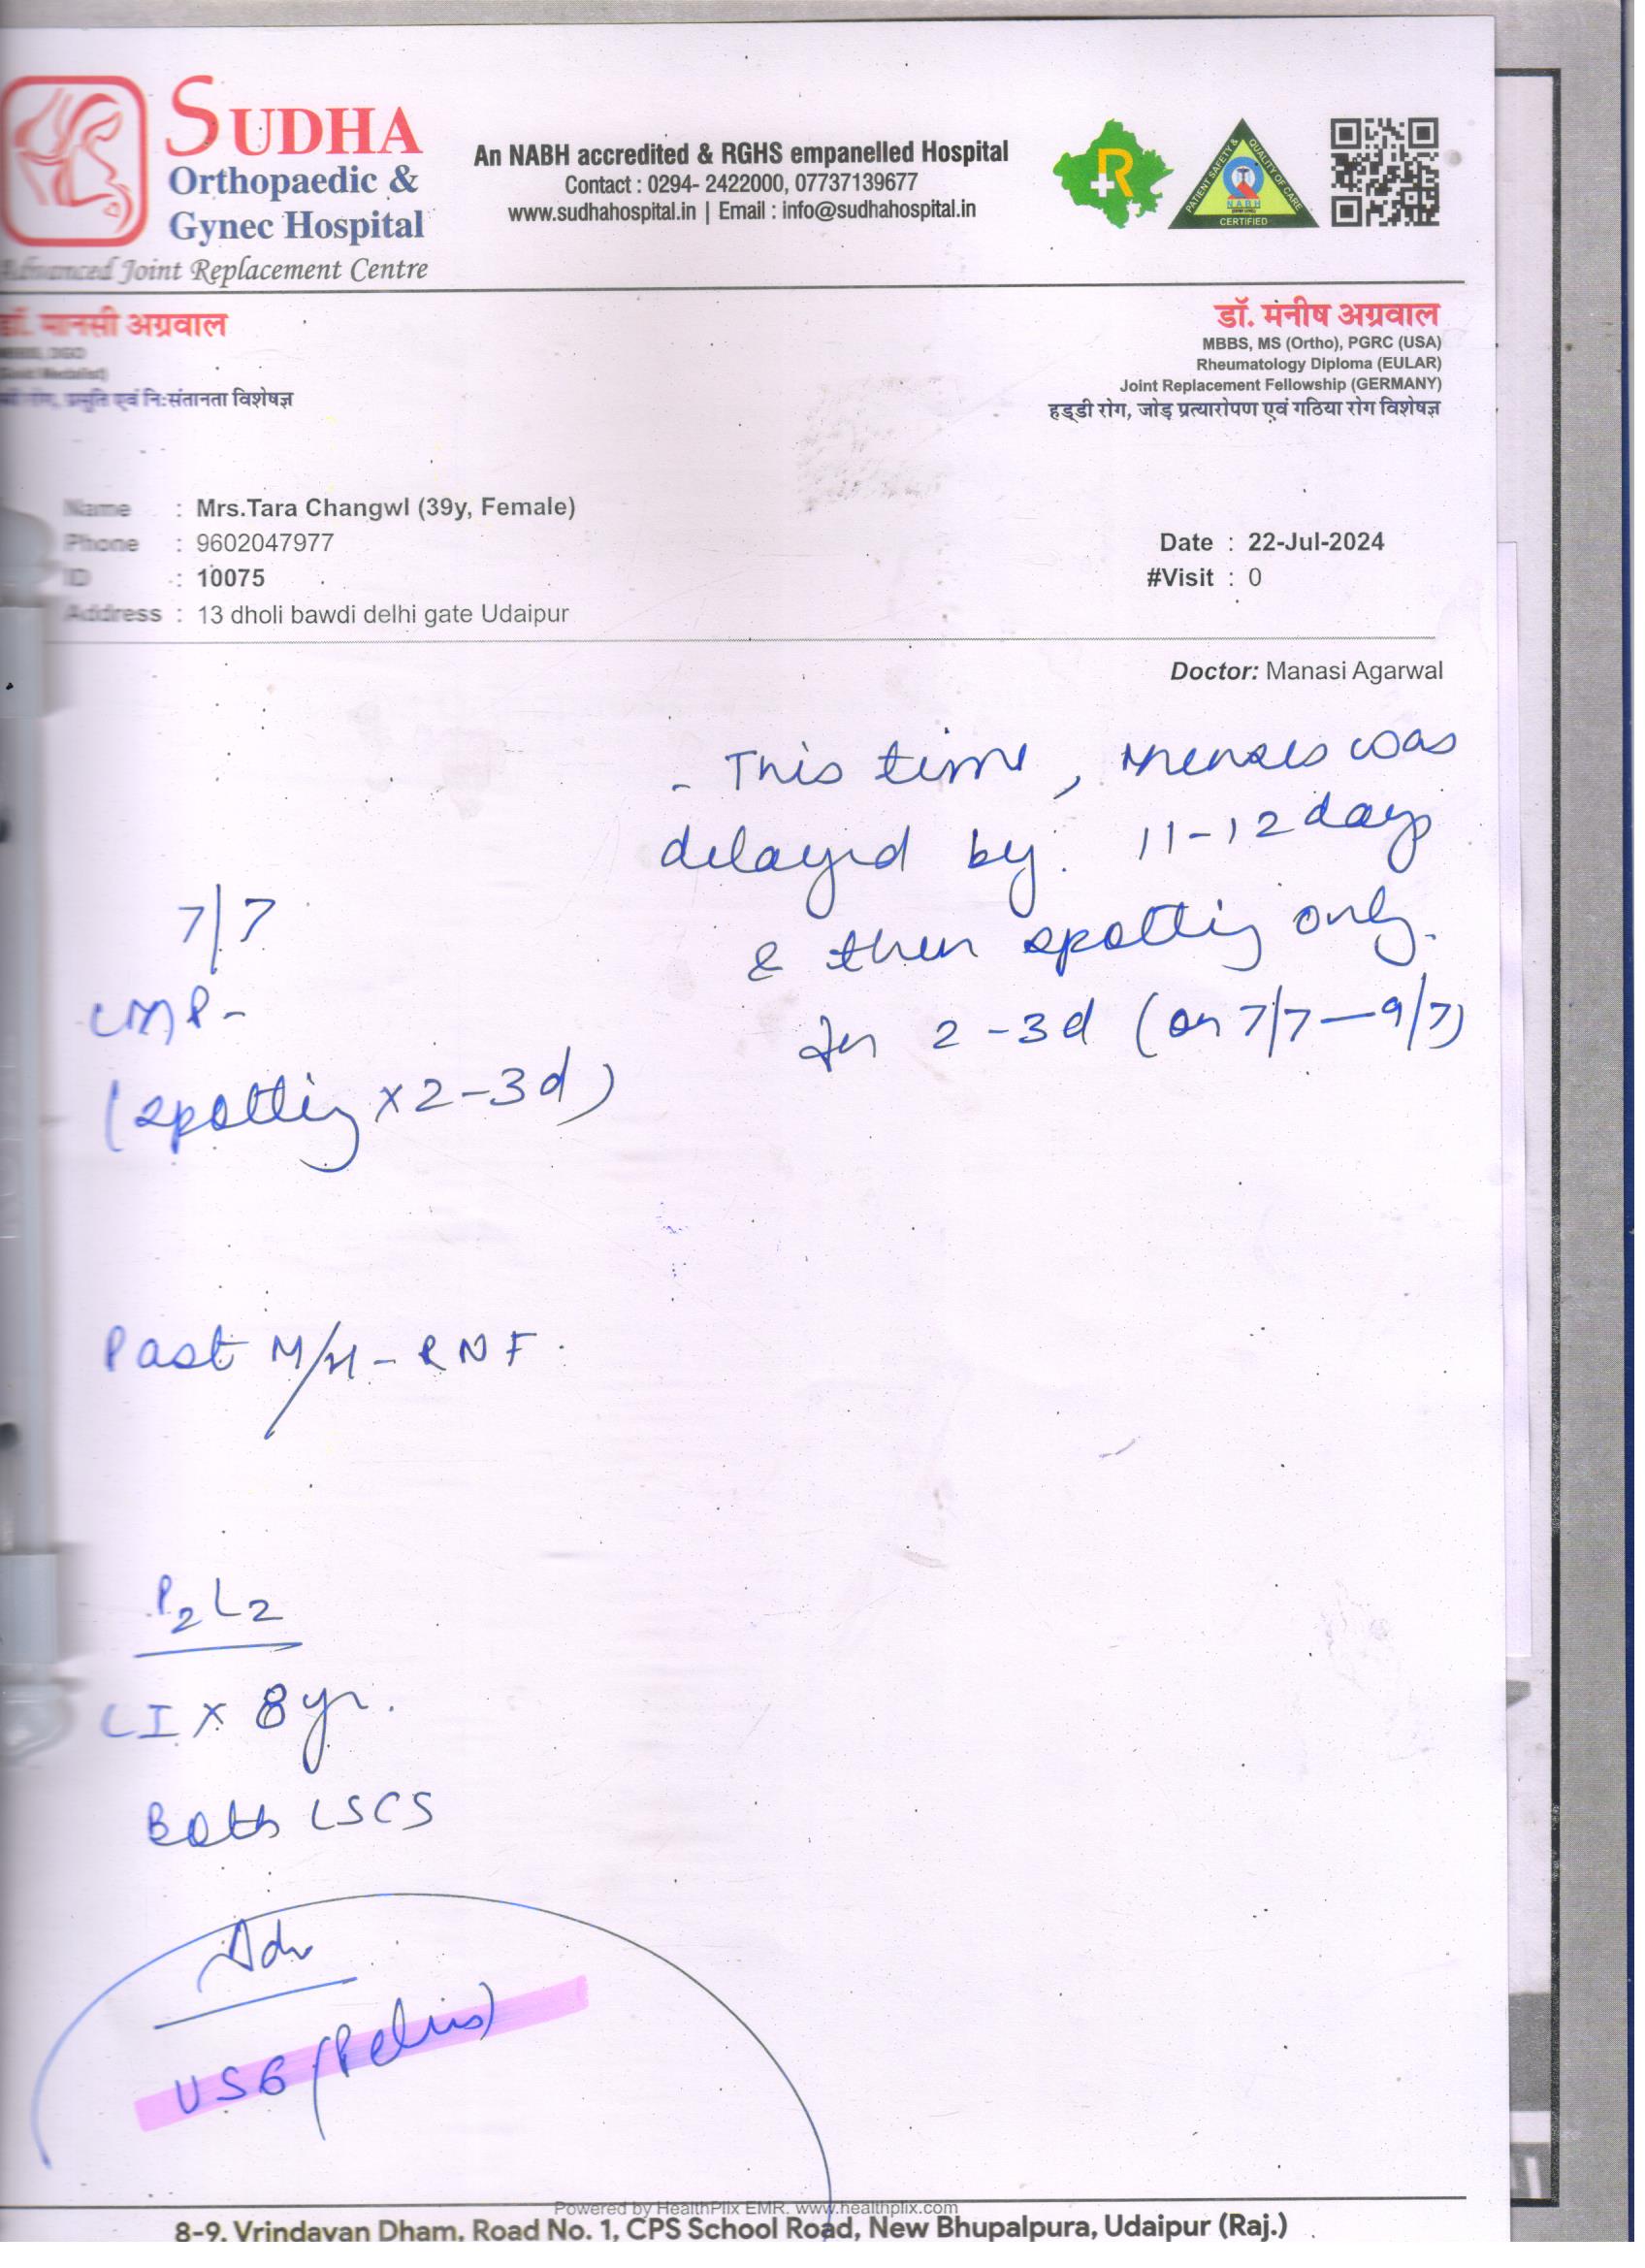 SUDHA
Orthopaedic &
Gynec Hospital
Advanced Joint Replacement Centre
An NABH accredited & RGHS empanelled Hospital
Contact : 0294- 2422000, 07737139677
www.sudhahospital.in | Email : info@sudhahospital.in
R
PATIENT SAFETY & QUALITY OF CARE
NABH
CERTIFIED
डॉ. मानसी अग्रवाल
MBBS, DGO
रोग, प्रसुति एवं नि:संतानता विशेषज्ञ
डॉ. मनीष अग्रवाल
MBBS, MS (Ortho), PGRC (USA)
Rheumatology Diploma (EULAR)
Joint Replacement Fellowship (GERMANY)
हड्डी रोग, जोड़ प्रत्यारोपण एवं गठिया रोग विशेषज्ञ
Name : Mrs.Tara Changwl (39y, Female)
Phone : 9602047977
ID : 10075
Address : 13 dholi bawdi delhi gate Udaipur
Date : 22-Jul-2024
#Visit : 0
Doctor: Manasi Agarwal
- This time, menses was
delayed by 11-12 days
& then spotting only
for 2-3d (on 7/7-9/7)
7/7
LMP-
(spotting x 2-3d)
Past M/H - RNF.
P2L2
LI x 8yr.
Both LSCS
Adv
USG (Pelvis)
Powered by HealthPlix EMR. www.healthplix.com
8-9, Vrindavan Dham, Road No. 1, CPS School Road, New Bhupalpura, Udaipur (Raj.)